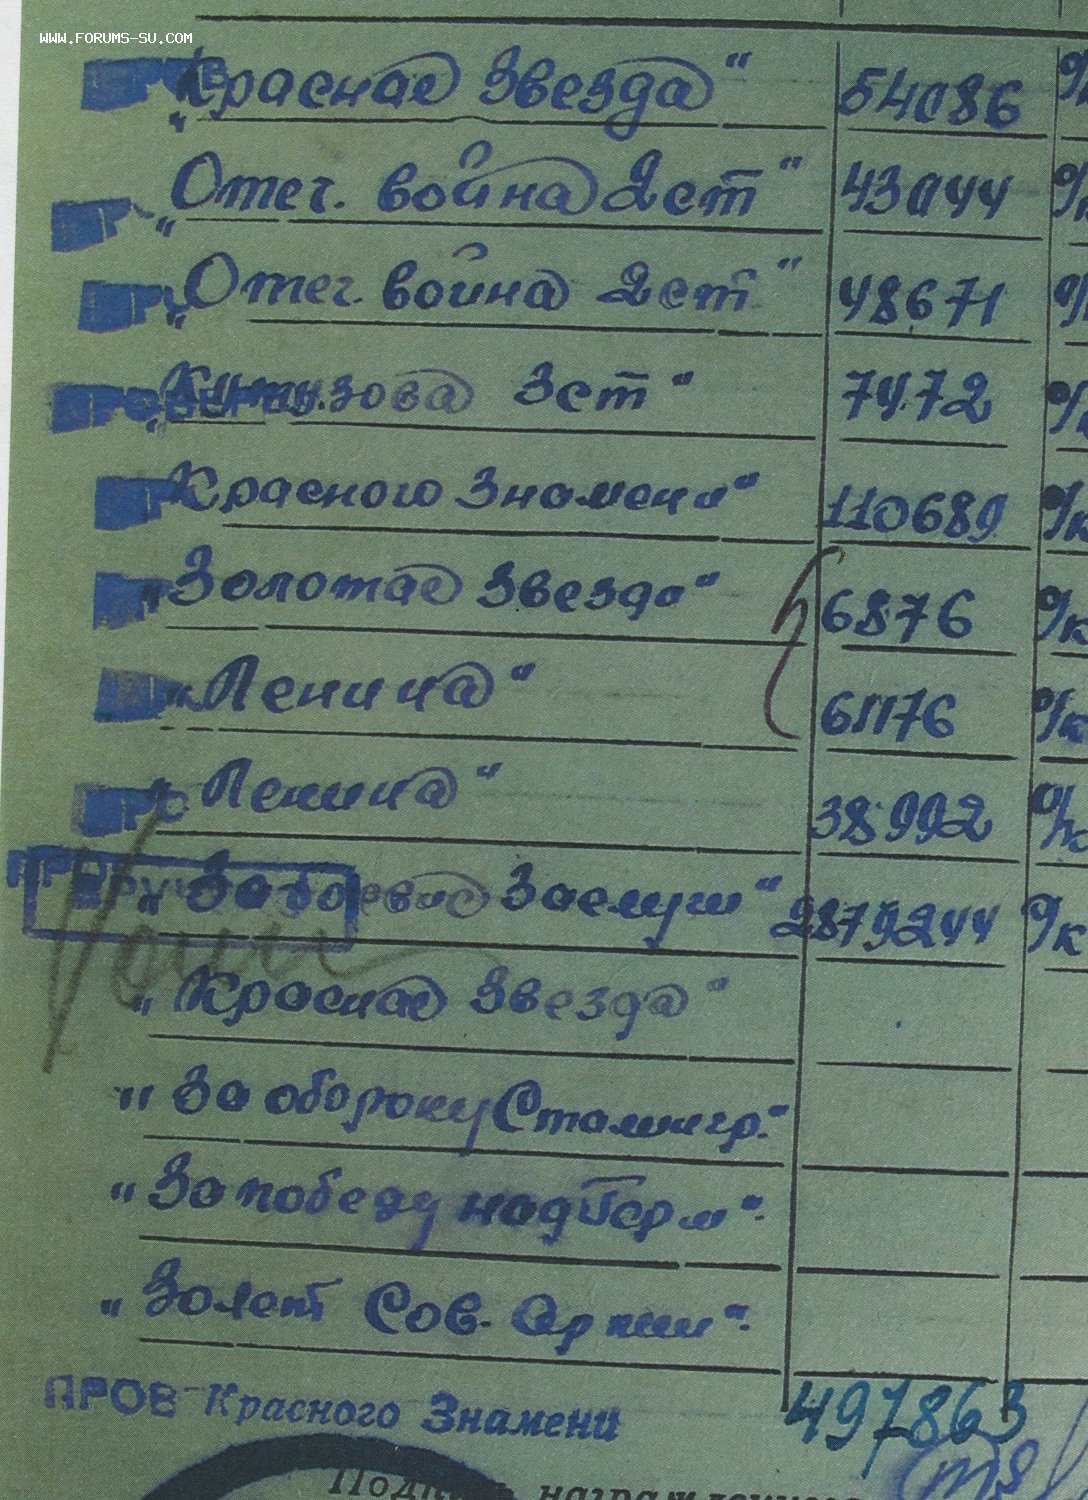 WWW.FORUMS-SU.COM
„Красная Звезда" 54086
„Отеч. война 2ст" 43044
„Отеч. война 2ст" 48671
„Кутузова 3ст" 7472
„Красного Знамени" 110689 о/к
„Золотая Звезда" 6876 о/к
„Ленина" 61176 о/к
„Ленина" 38992
„За боевые Заслуги" 2879244 о/к
„Красная Звезда"
„За оборону Сталингр."
„За победу над Герм".
„30 лет Сов. Армии".
ПРОВ Красного Знамени 497863
награжденного